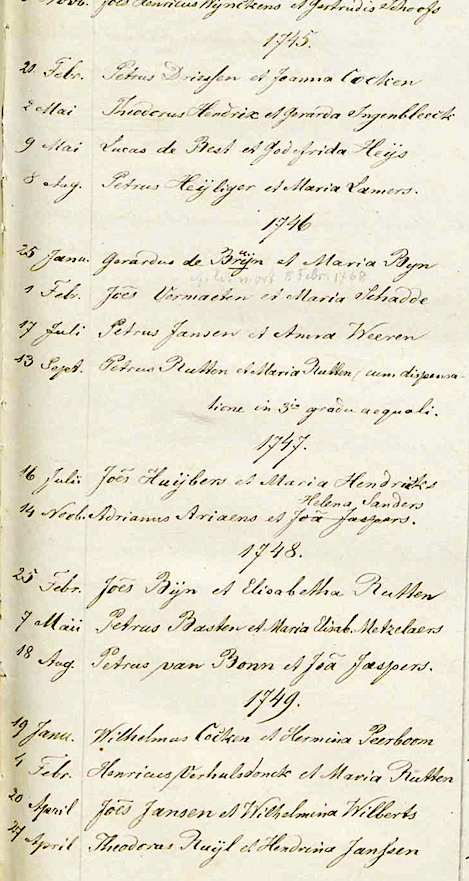 Joēs Henricus Wynckens et Gertrudis Schoofs
1745.
20 Febr. Petrus Driessen et Joanna Cocken
2 Mai Theodorus Hendrix et Gerarda Ingenbleeck
9 Mai Lucas de Best et Godefrida Heijs
8 Aug. Petrus Heijliger et Maria Lamers.
1746
25 Janu. Gerardus de Bruijn et Maria Byn
mort 8 Febr. 1768
1 Febr. Joēs Vermaeten et Maria Schadde
17 Juli Petrus Jansen et Anna Weeren
13 Sept. Petrus Rutten et Maria Rutten, cum dispensa-
tione in 3io gradu aequali.
1747.
16 Julii Joēs Huijbers et Maria Hendriks
Helena Sanders
14 Novb. Adrianus Ariaens et Joā Jaspers.
1748.
25 Febr. Joēs Bijn et Elisabetha Rutten
7 Maii Petrus Basten et Maria Elisab. Metzelaers
18 Aug. Petrus van Bonn et Joā Jaspers.
1749.
19 Janu. Wilhelmus Cocken et Hermina Peerboom
4 Febr. Henricus Verhulsdonck et Maria Rutten
20 April Joēs Jansen et Wilhelmina Wilberts
27 April Theodorus Ruijl et Hendrina Janssen